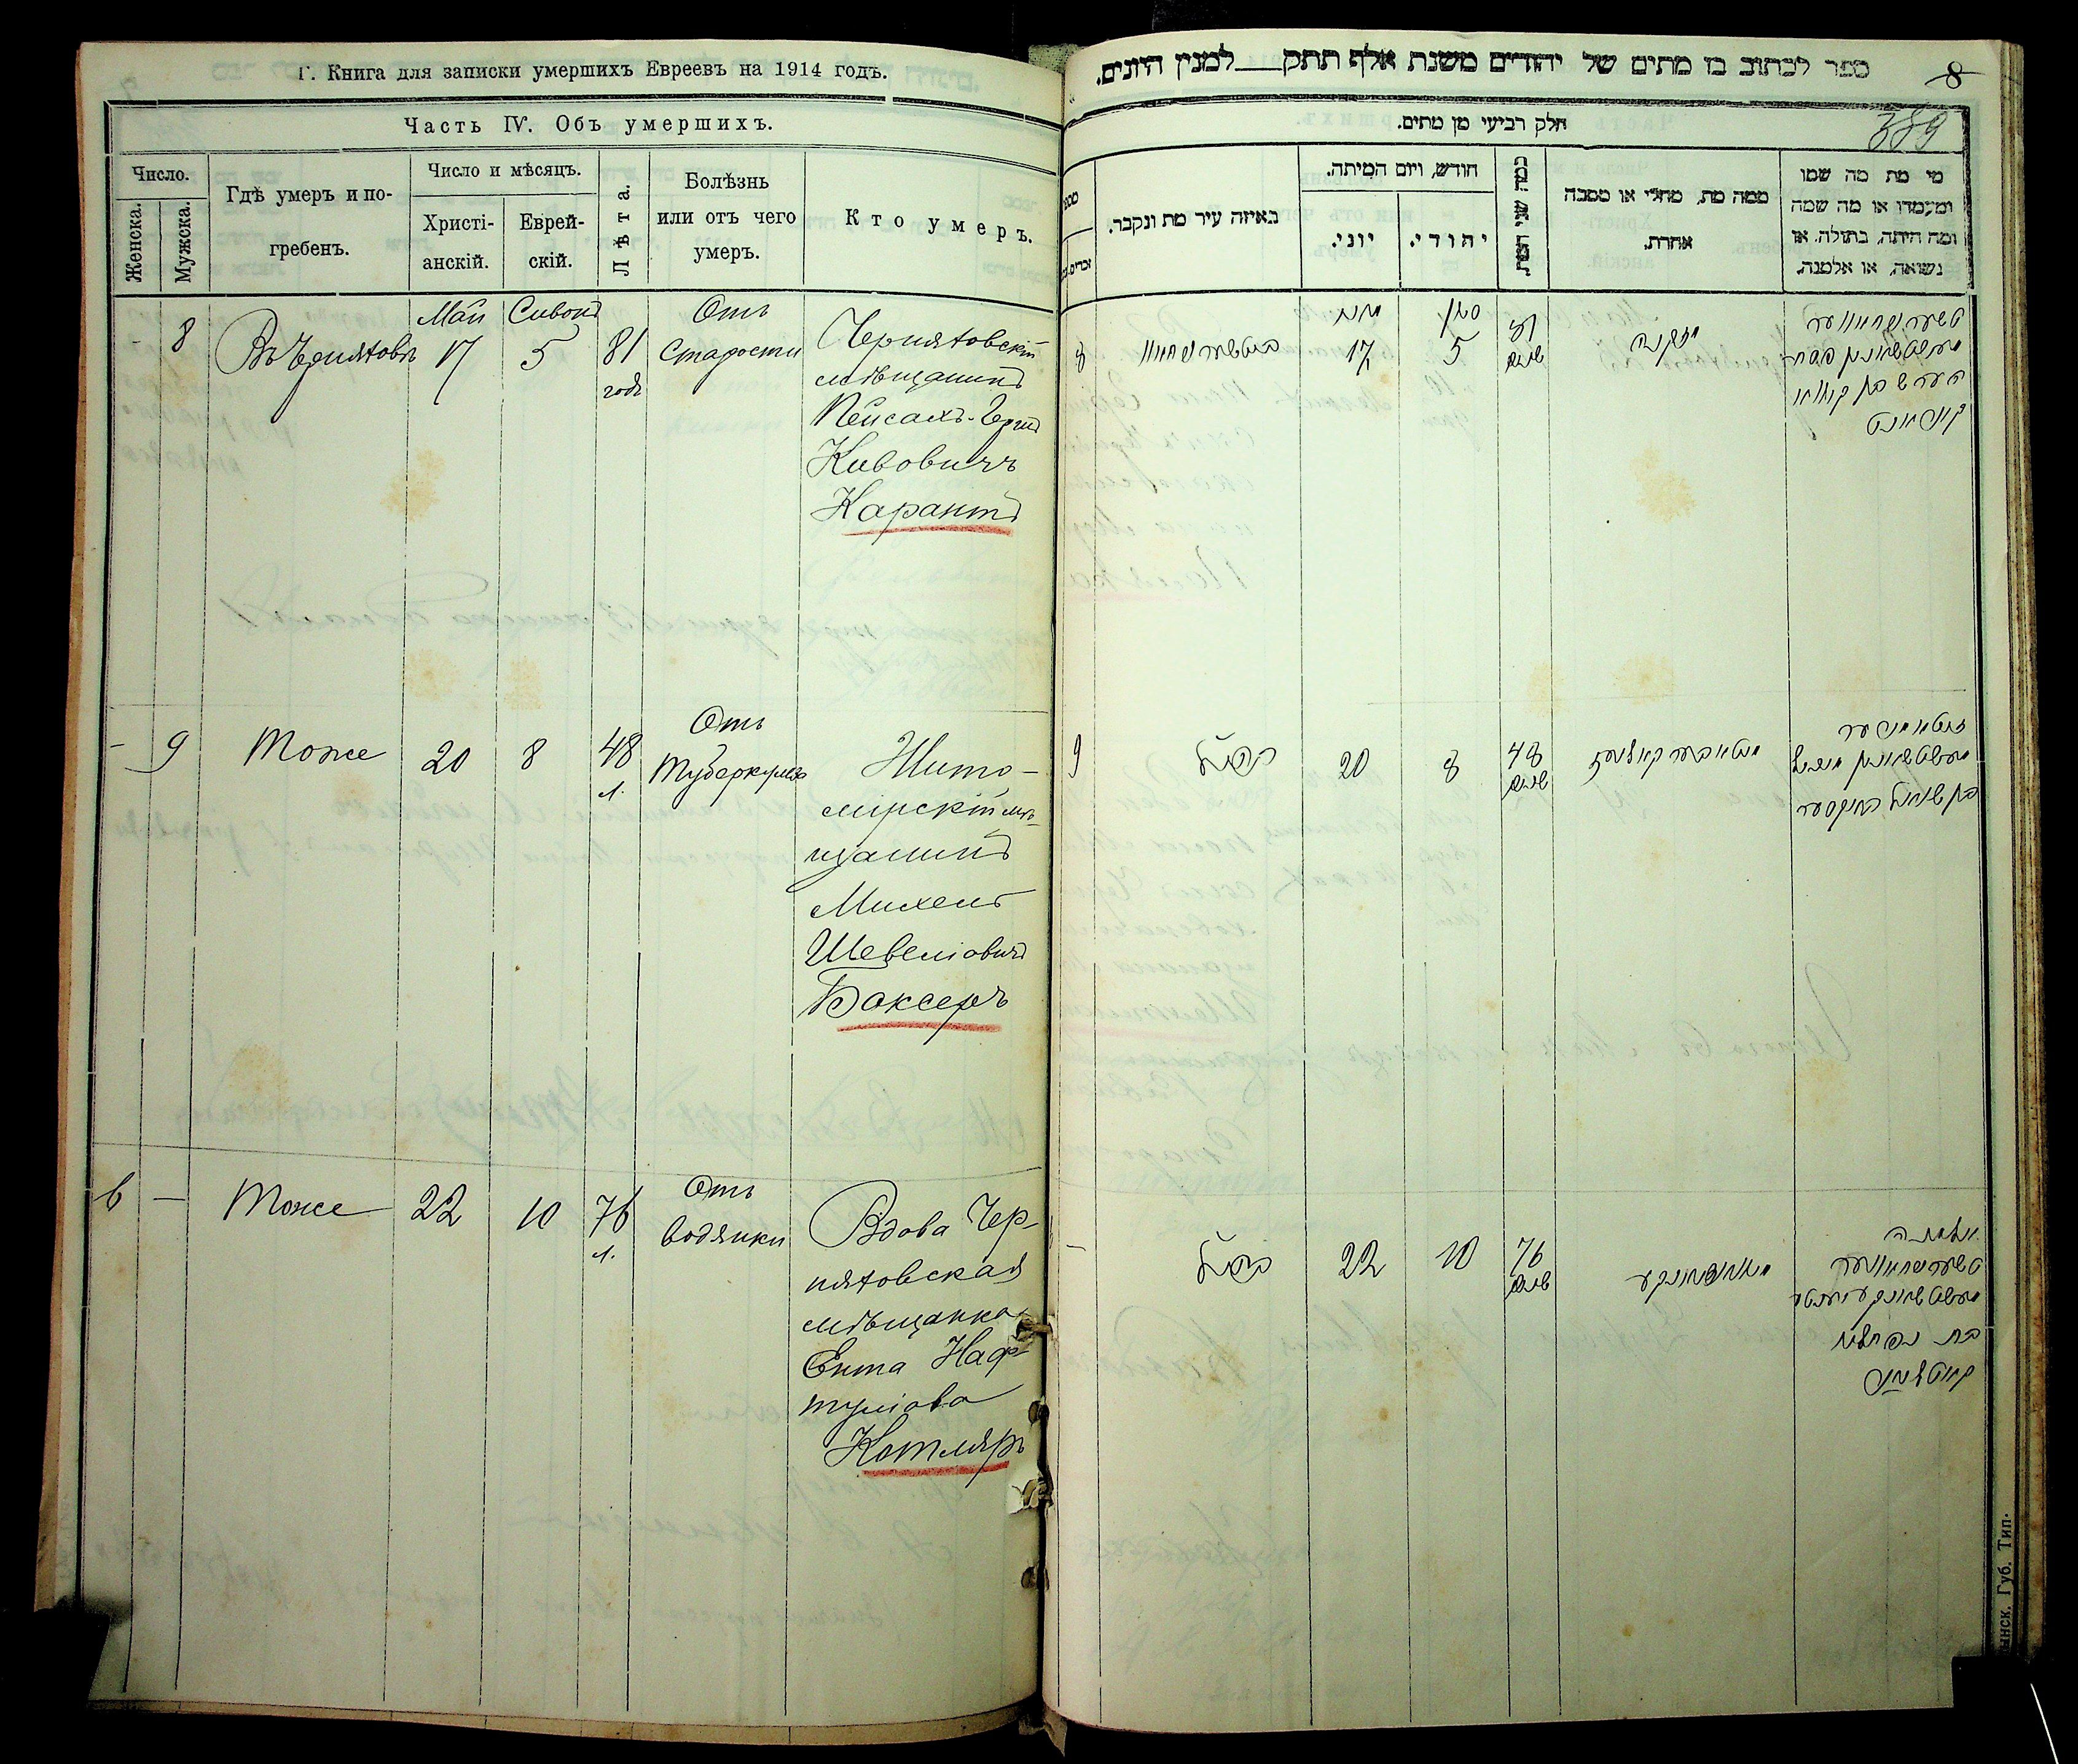 Г. Книга для записки умершихъ Евреевъ на 1914 годъ.
Часть IV. Объ умершихъ.
Число.
Женска.
Мужска.
Гдѣ умеръ и по-
гребенъ.
Число и мѣсяцъ.
Христі-
анскій.
Еврей-
скій.
Лѣта.
Болѣзнь
или отъ чего
умеръ.
Кто умеръ.
- 8
Въ Черняховѣ
Май
17
Сивонъ
5
81
годъ
Отъ
Старости
Черняховскій
мѣщанинъ
Пейсахъ-Гершъ
Кивовичъ
Карантъ
- 9
Тоже
20
8
48
л.
Отъ
Туберкулеза
Жито-
мірскій мѣ-
щанинъ
Михель
Шевеліовичъ
Боксеръ
6 —
Тоже
22
10
76
л.
Отъ
водянки
Вдова Чер-
няховская
мѣщанка
Ента Наф-
туліова
Котляръ
ספר לכתוב בו מתים של יהודים משנת אלף תתק למנין היונים.
8
389
חלק רביעי מן מתים.
באיזה עיר מת ונקבר.
חודש, ויום המיתה.
יוני.
יהודי.
כמה שני המת
ממה מת, מחלי או מסבה
אחרת.
מי מת מה שמו
ומעמדו או מה שמה
ומה היתה, בתולה, או
נשואה, או אלמנה.
8
מאי
17
סיון
5
81
שנים
מזקנה
9
כנ״ל
20
8
48
שנים
-
כנ״ל
22
10
76
שנים
אלמנה
Губ. Тип.